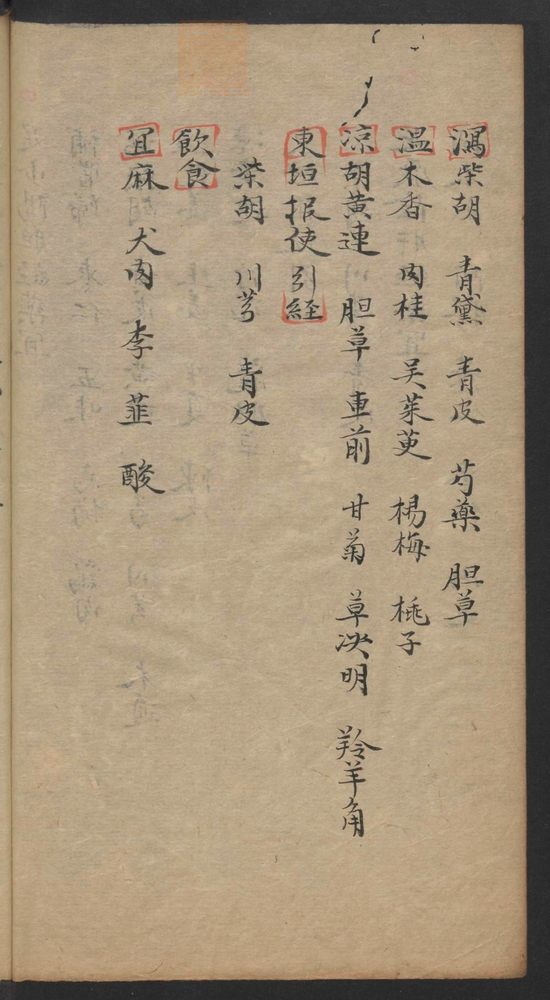 瀉柴胡 青黛 青皮 芍藥 胆草
温木香 肉桂 吴茱萸 楊梅 桃子
凉胡黄連 胆草 車前 甘菊 草决明 羚羊角
東垣报使引経
柴胡 川芎 青皮
飲食
宜麻 犬肉 李 韮 酸